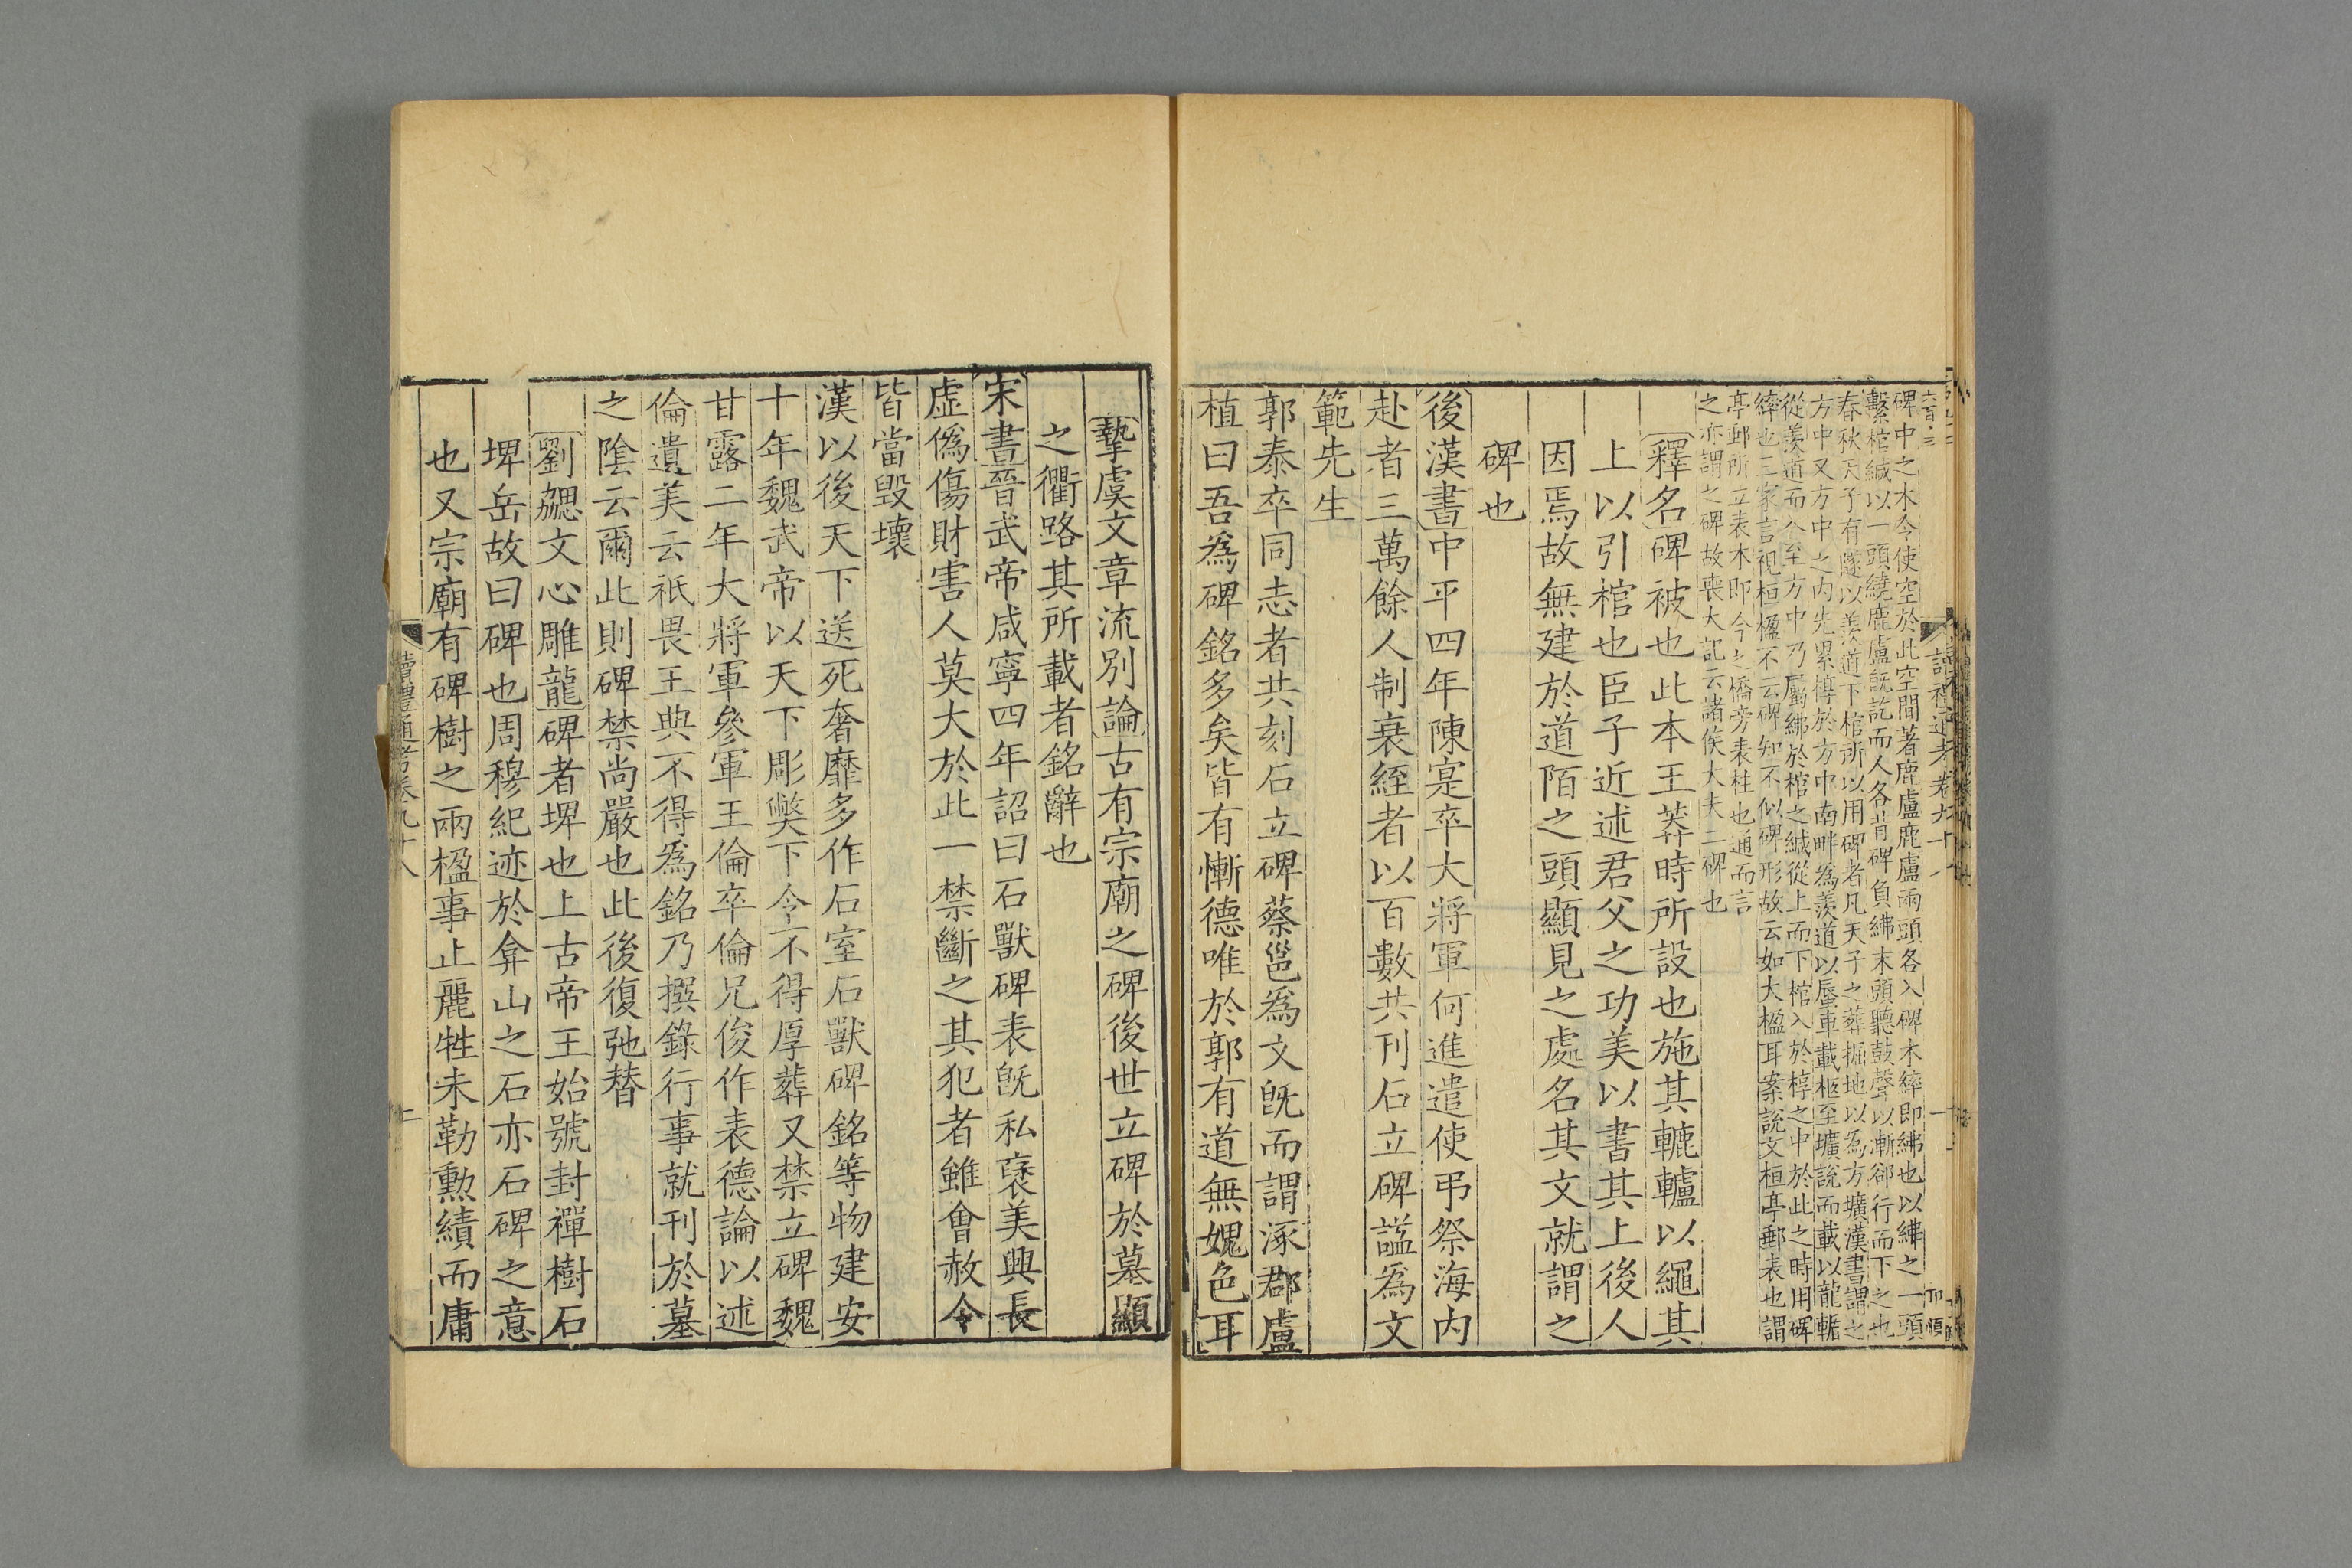 碑中之木令使空於此空間著鹿盧鹿盧兩頭各入碑木綍即紼也以紼之一頭
繫棺緘以一頭繞鹿盧既訖而人各背碑負紼末頭聽鼓聲以漸卻行而下之也
春秋天子有隧以羨道下棺所以用碑者凡天子之葬掘地以為方壙漢書謂之
方中又方中之内先累槨於方中南畔為羨道以蜃車載柩至壙説而載以龍輴
從羨道而入至方中乃屬紼於棺之緘從上而下棺入於椁之中於此之時用碑
綍也三家言視桓楹不云碑知不似碑形故云如大楹耳案説文桓亭郵表也謂
亭郵所立表木即今之橋旁表柱也通而言
之亦謂之碑故喪大記云諸侯大夫二碑也
釋名碑被也此本王莽時所設也施其轆轤以繩其
上以引棺也臣子近述君父之功美以書其上後人
因焉故無建於道陌之頭顯見之處名其文就謂之
碑也
後漢書中平四年陳寔卒大將軍何進遣使弔祭海内
赴者三萬餘人制衰絰者以百數共刊石立碑諡爲文
範先生
郭泰卒同志者共刻石立碑蔡邕爲文旣而謂涿郡盧
植曰吾爲碑銘多矣皆有慚德唯於郭有道無媿色耳
摯虞文章流別論古有宗廟之碑後世立碑於墓顯
之衢路其所載者銘辭也
宋書晉武帝咸寧四年詔曰石獸碑表旣私褒美興長
虛僞傷財害人莫大於此一禁斷之其犯者雖會赦令
皆當毀壞
漢以後天下送死奢靡多作石室石獸碑銘等物建安
十年魏武帝以天下彫獘下令不得厚葬又禁立碑魏
甘露二年大將軍參軍王倫卒倫兄俊作表德論以述
倫遺美云祇畏王典不得爲銘乃撰錄行事就刊於墓
之陰云爾此則碑禁尚嚴也此後復弛替
劉勰文心雕龍碑者埤也上古帝王始號封禪樹石
埤岳故曰碑也周穆紀迹於弇山之石亦石碑之意
也又宗廟有碑樹之兩楹事止麗牲未勒勲績而庸
讀禮通考卷九十八